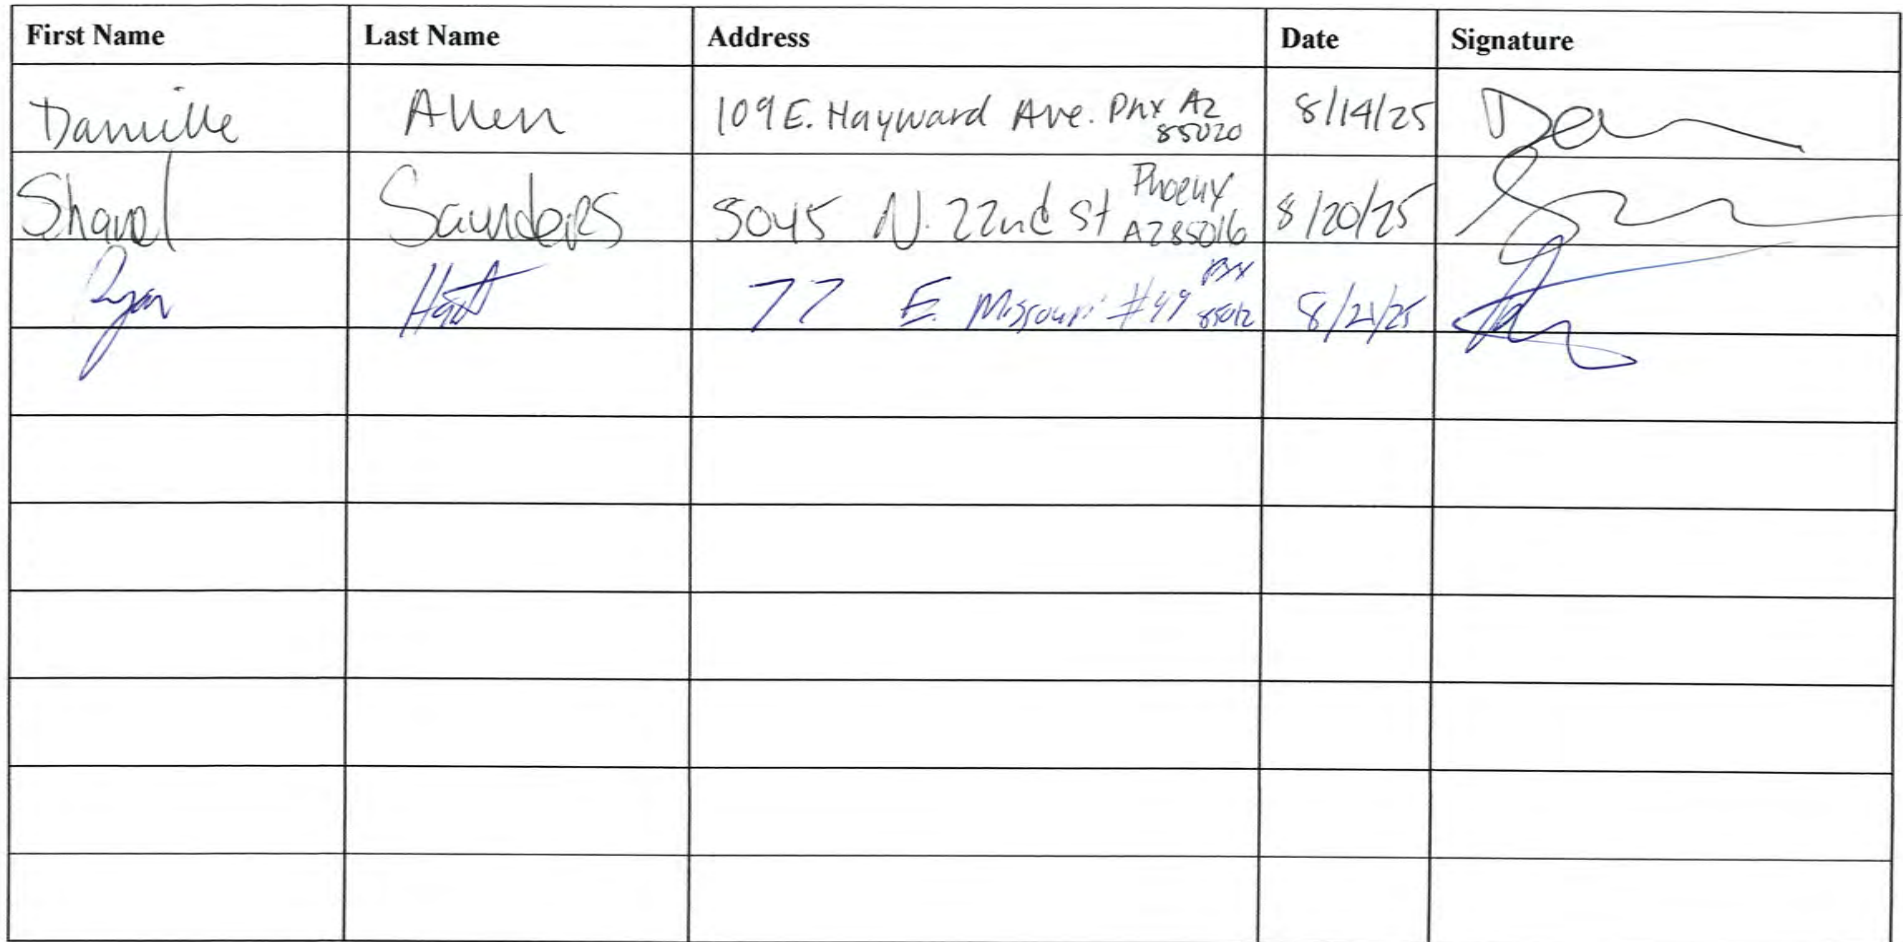 First Name Last Name Address Date Signature
Danielle Allen 109 E. Hayward Ave. Phx AZ 85020 8/14/25
Saunders 5045 N. 22nd St Phoenix AZ 85016 8/20/25
Ryan 77 E. Missouri #49 Phx 85012 8/21/25